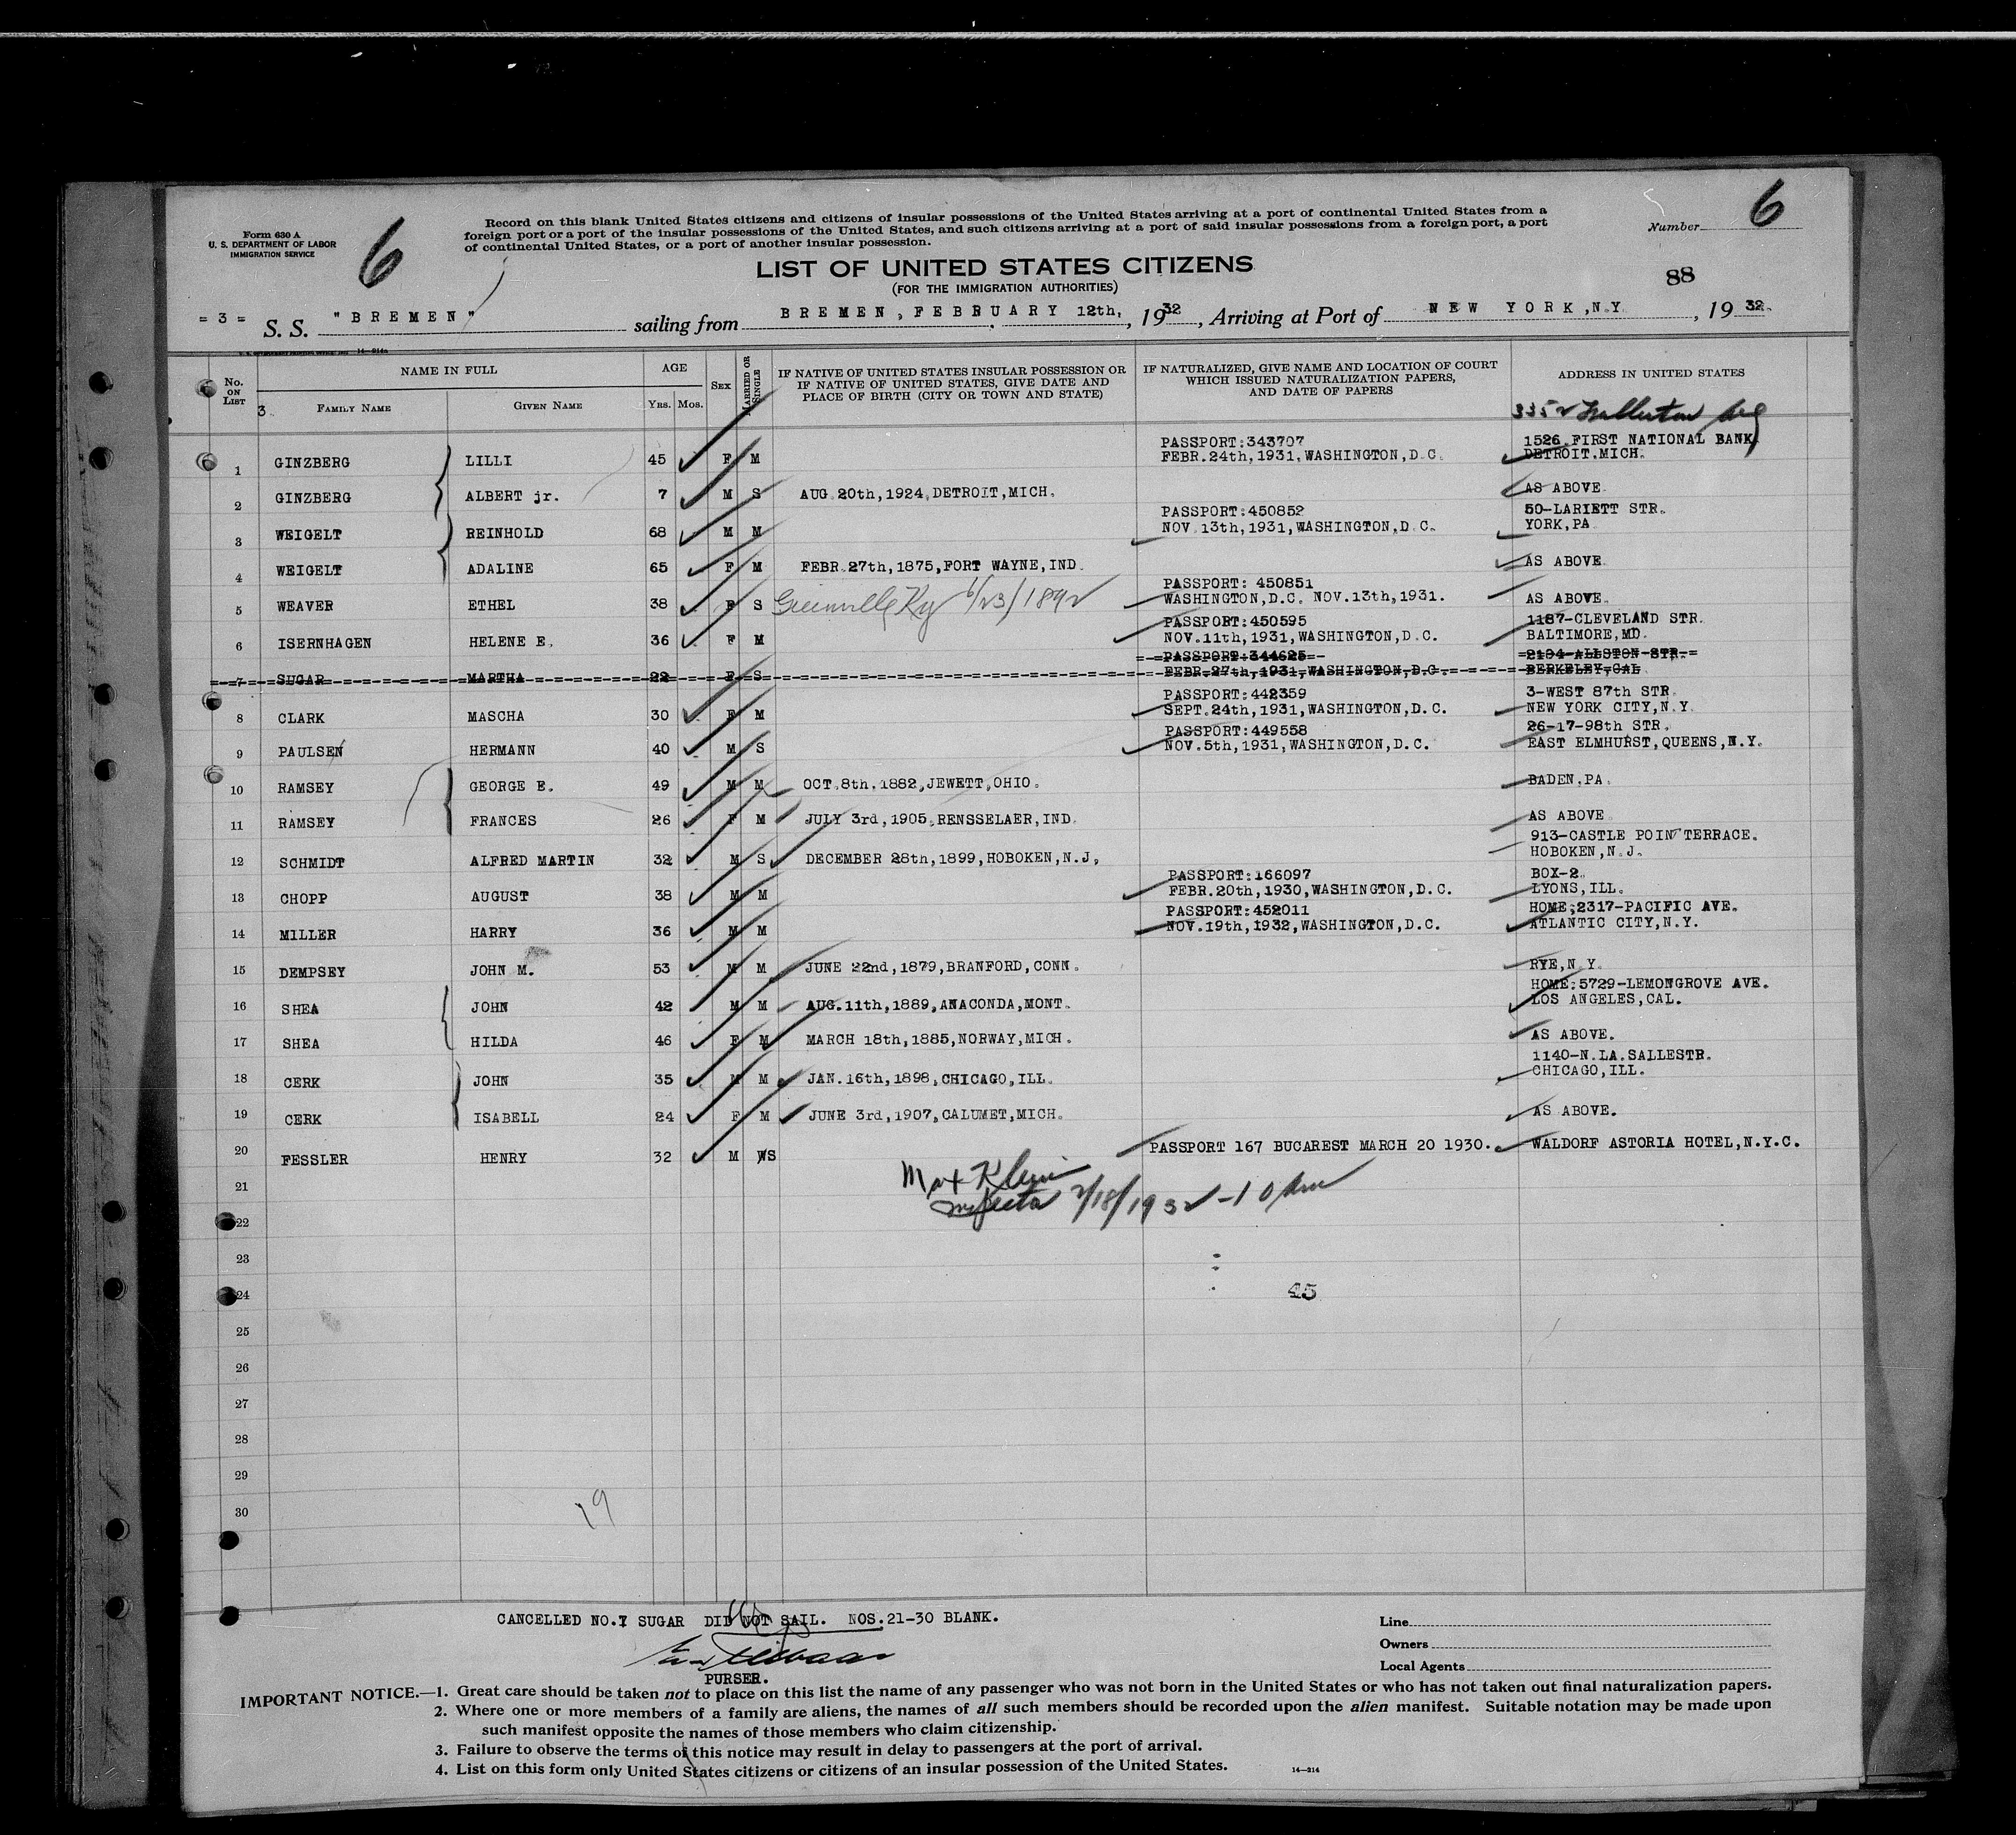 Form 630 A
U. S. DEPARTMENT OF LABOR
IMMIGRATION SERVICE
6
Record on this blank United States citizens and citizens of insular possessions of the United States arriving at a port of continental United States from a
foreign port or a port of the insular possessions of the United States, and such citizens arriving at a port of said insular possessions from a foreign port, a port
of continental United States, or a port of another insular possession.
Number 6
LIST OF UNITED STATES CITIZENS
(FOR THE IMMIGRATION AUTHORITIES)
88
= 3 = S. S. "BREMEN" sailing from BREMEN, FEBRUARY 12th, 1932, Arriving at Port of NEW YORK, N.Y. , 1932.
No. ON LIST
NAME IN FULL
FAMILY NAME
GIVEN NAME
AGE
YRS. MOS.
SEX
MARRIED OR SINGLE
IF NATIVE OF UNITED STATES INSULAR POSSESSION OR
IF NATIVE OF UNITED STATES, GIVE DATE AND
PLACE OF BIRTH (CITY OR TOWN AND STATE)
IF NATURALIZED, GIVE NAME AND LOCATION OF COURT
WHICH ISSUED NATURALIZATION PAPERS,
AND DATE OF PAPERS
ADDRESS IN UNITED STATES
3
3352 Fullerton Ave
PASSPORT:343707 1526.FIRST NATIONAL BANK.
1 GINZBERG LILLI 45 F M FEBR.24th,1931,WASHINGTON,D.C. DETROIT.MICH.
2 GINZBERG ALBERT jr. 7 M S AUG.20th,1924,DETROIT,MICH. AS ABOVE.
PASSPORT:450852 50-LARIETT STR.
3 WEIGELT REINHOLD 68 M M NOV.13th,1931,WASHINGTON,D.C. YORK,PA
4 WEIGELT ADALINE 65 F M FEBR.27th,1875,FORT WAYNE,IND. AS ABOVE
PASSPORT: 450851
5 WEAVER ETHEL 38 F S Greenville Ky 6/23/1892 WASHINGTON,D.C. NOV.13th,1931. AS ABOVE.
PASSPORT:450595 1187-CLEVELAND STR.
6 ISERNHAGEN HELENE E. 36 F M NOV.11th,1931,WASHINGTON,D.C. BALTIMORE,MD.
PASSPORT:344625 2194-ALLSTON STR.
7 SUGAR MARTHA 22 F S FEBR.27th,1931,WASHINGTON,D.C. BERKELEY,CAL
PASSPORT:442359 3-WEST 87th STR.
8 CLARK MASCHA 30 F M SEPT.24th,1931,WASHINGTON,D.C. NEW YORK CITY,N.Y.
PASSPORT:449558 26-17-98th STR.
9 PAULSEN HERMANN 40 M S NOV.5th,1931,WASHINGTON,D.C. EAST ELMHURST,QUEENS,N.Y.
10 RAMSEY GEORGE E. 49 M M OCT.8th,1882,JEWETT,OHIO. BADEN,PA.
11 RAMSEY FRANCES 26 F M JULY 3rd,1905,RENSSELAER,IND. AS ABOVE
913-CASTLE POINT TERRACE.
12 SCHMIDT ALFRED MARTIN 32 M S DECEMBER 28th,1899,HOBOKEN,N.J. HOBOKEN,N.J.
PASSPORT:166097 BOX-2.
13 CHOPP AUGUST 38 M M FEBR.20th,1930,WASHINGTON,D.C. LYONS,ILL.
PASSPORT:452011 HOME;2317-PACIFIC AVE.
14 MILLER HARRY 36 M M NOV.19th,1932,WASHINGTON,D.C. ATLANTIC CITY,N.Y.
15 DEMPSEY JOHN M. 53 M M JUNE 22nd,1879,BRANFORD,CONN. RYE,N.Y.
HOME:5729-LEMONGROVE AVE.
16 SHEA JOHN 42 M M AUG.11th,1889,ANACONDA,MONT. LOS ANGELES,CAL.
17 SHEA HILDA 46 F M MARCH 18th,1885,NORWAY,MICH. AS ABOVE.
1140-N.LA.SALLESTR.
18 CERK JOHN 35 M M JAN.16th,1898,CHICAGO,ILL. CHICAGO,ILL.
19 CERK ISABELL 24 F M JUNE 3rd,1907,CALUMET,MICH. AS ABOVE.
20 FESSLER HENRY 32 M WS PASSPORT 167 BUCAREST MARCH 20 1930. WALDORF ASTORIA HOTEL,N.Y.C.
21 Max Klein
Inspector 2/18/1932 - 10 Am
22
23
24 45
25
26
27
28
29
30
19
CANCELLED NO.7 SUGAR DID NOT SAIL. NOS.21-30 BLANK.
PURSER.
Line
Owners
Local Agents
IMPORTANT NOTICE.—1. Great care should be taken not to place on this list the name of any passenger who was not born in the United States or who has not taken out final naturalization papers.
2. Where one or more members of a family are aliens, the names of all such members should be recorded upon the alien manifest. Suitable notation may be made upon
such manifest opposite the names of those members who claim citizenship.
3. Failure to observe the terms of this notice may result in delay to passengers at the port of arrival.
4. List on this form only United States citizens or citizens of an insular possession of the United States.
14—214